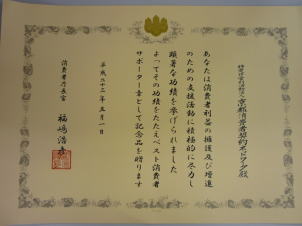 特定非営利活動法人 京都消費者契約ネットワーク殿
あなたは消費者利益の擁護及び増進
のための支援活動に積極的に尽力し
顕著な功績を挙げられました
よってその功績をたたえベスト消費者
サポーター章として記念品を贈ります
平成二十三年五月一日
消費者庁長官
福嶋浩彦